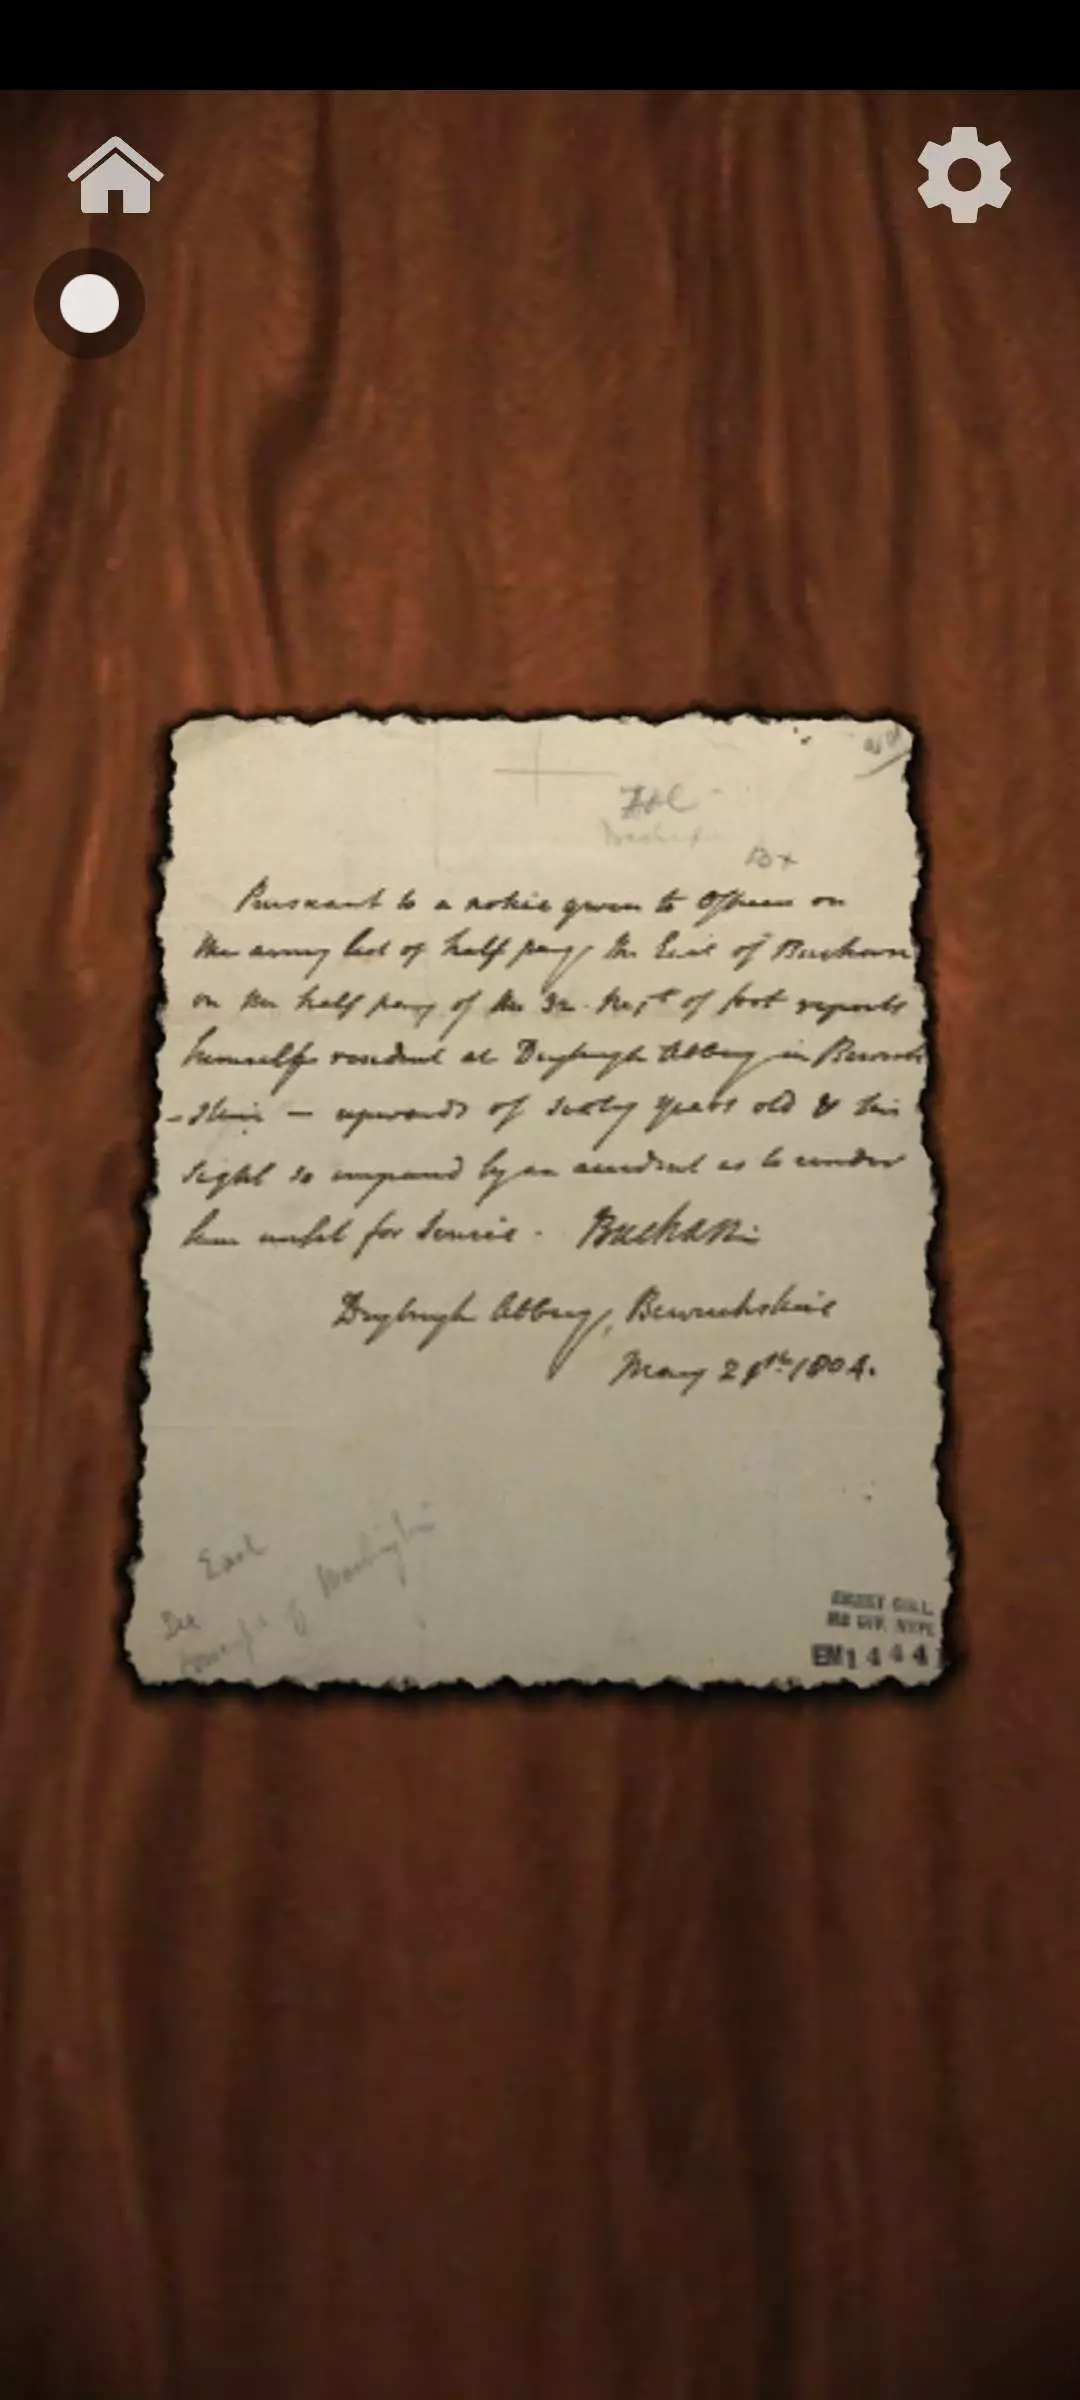 Pursuant to a notice given to Officers on
the army list of half pay, the Earl of Buchan
on the half pay of the 32 Regt of foot reports
himself resident at Dryburgh Abbey in Berwick
-shire - upwards of sixty years old & his
sight so impaired by an accident as to render
him unfit for Service. Buchan
Dryburgh Abbey, Berwickshire
May 2 th 1804.
Earl
of Washington
EMMET COLL.
MS DIV. NYPL
EM 1444